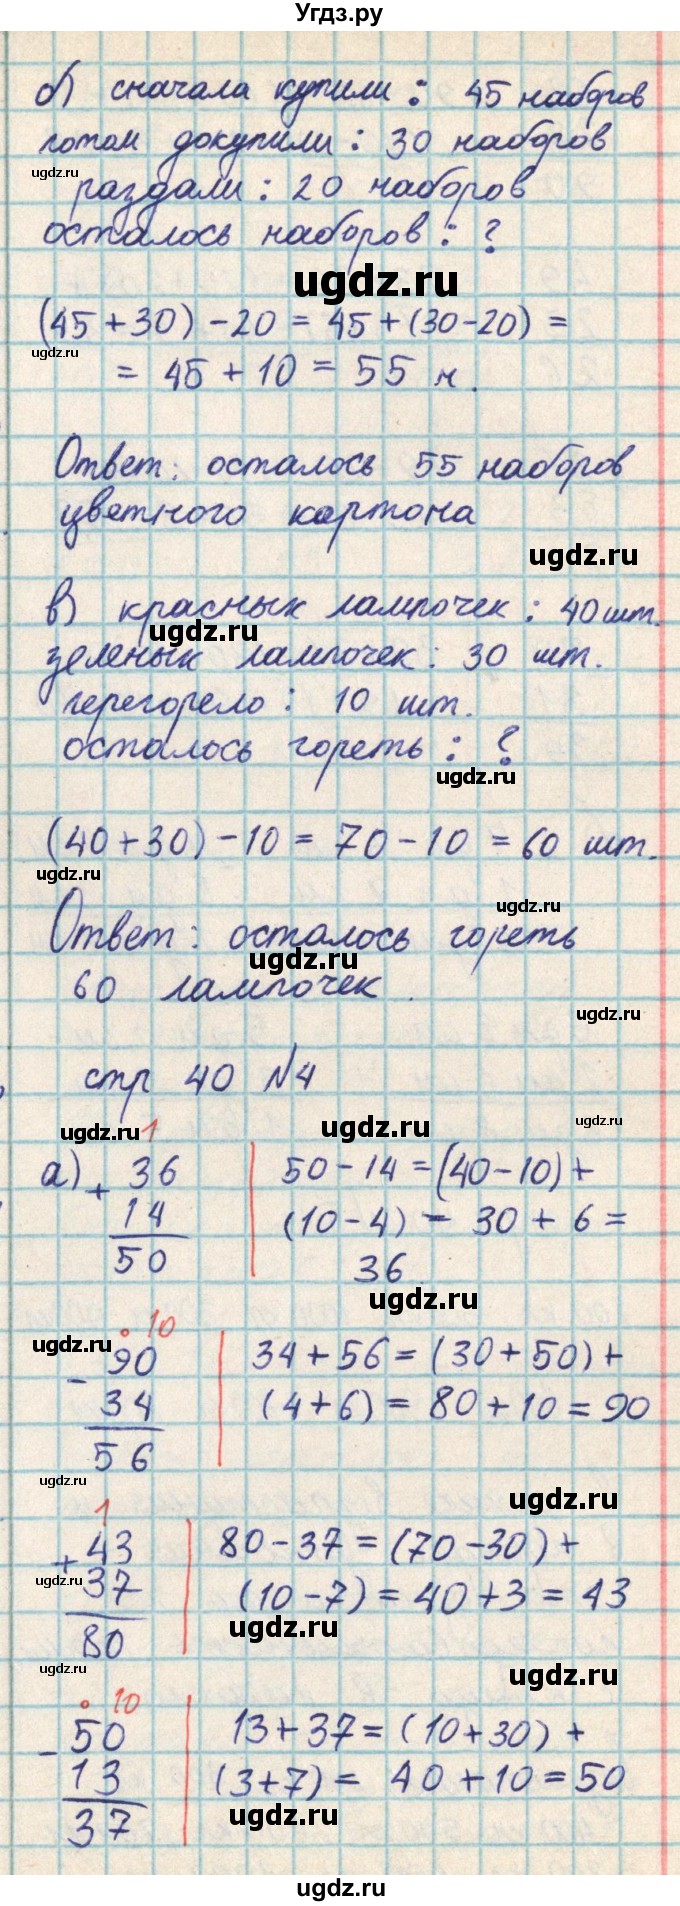 Угдз.ру
б) сначала купили: 45 наборов
потом докупили: 30 наборов
ugdz.ru
раздали: 20 наборов
осталось наборов: ?
ugdz.ru
(45+30)-20=45+(30-20)=
ugdz.ru
=45+10=55 н.
Ответ: осталось 55 наборов
цветного картона
ugdz.ru
в) красных лампочек: 40 шт.
ugdz.ru
зеленых лампочек: 30 шт.
перегорело: 10 шт.
осталось гореть: ?
ugdz.ru
(40+30)-10=70-10=60 шт.
ugdz.ru
ugdz.ru
Ответ: осталось гореть
ugdz.ru
60 лампочек.
ugdz.ru
стр 40 №4
ugdz.ru ugdz.ru ugdz.ru
1
а) + 36
14
50
50-14=(40-10)+
(10-4)=30+6=
36
ugdz.ru
ugdz.ru
• 10
- 90
34
56
34+56=(30+50)+
(4+6)=80+10=90
ugdz.ru
ugdz.ru
1
+ 43
37
80
ugdz.ru
80-37=(70-30)+
(10-7)=40+3=43
ugdz.ru
ugdz.ru
ugdz.ru
• 10
- 50
13
37
13+37=(10+30)+
(3+7)=40+10=50
ugdz.ru
ugdz.ru